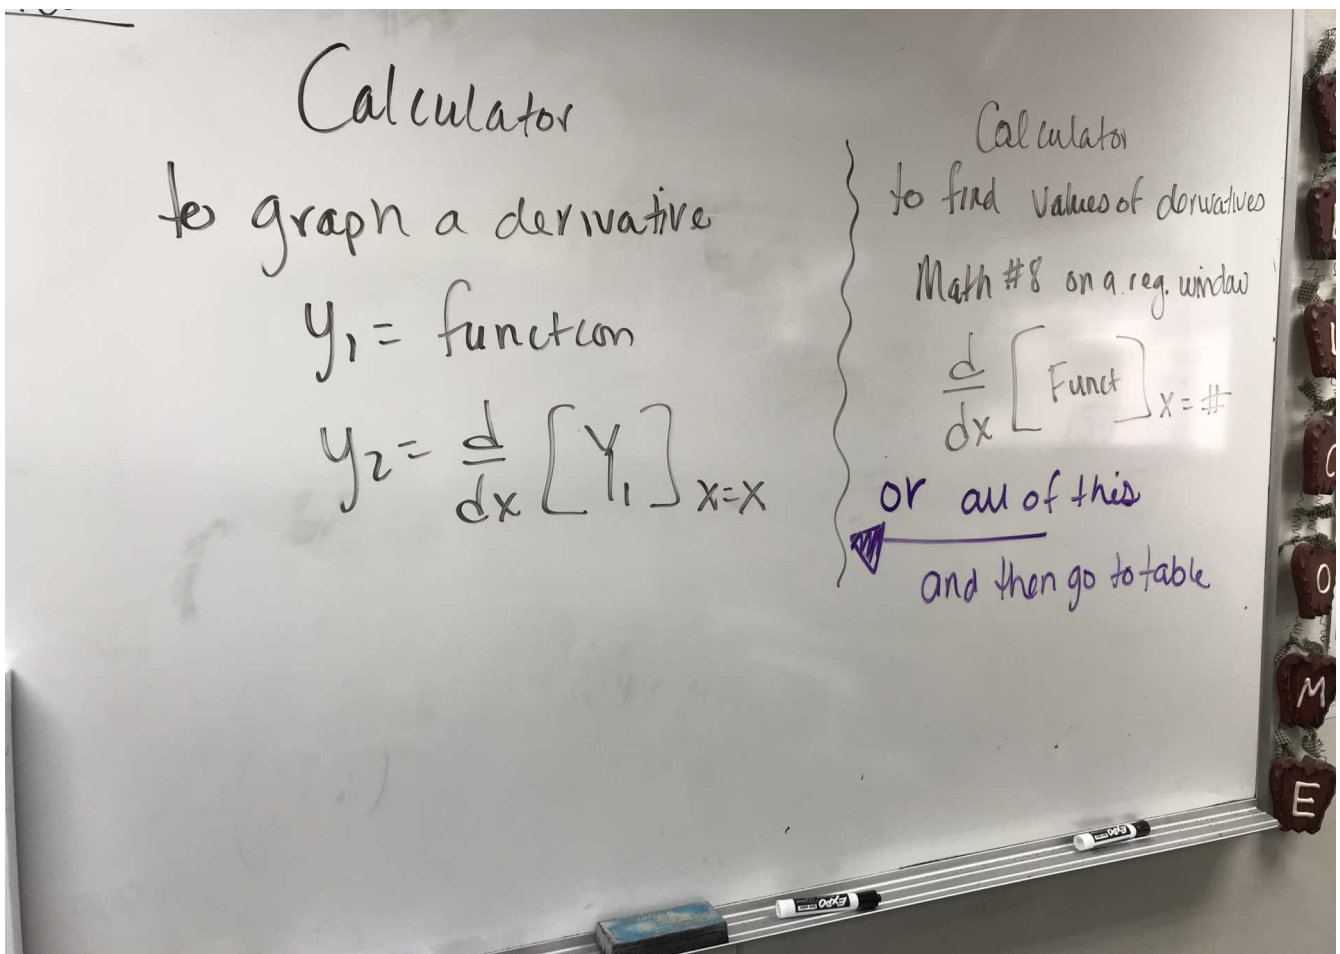 Calculator
to graph a derivative
y₁ = function
y₂ = d/dx [Y₁] x=x
Calculator
to find values of derivatives
Math #8 on a reg. window
d/dx [Funct] x = #
or all of this
and then go to table
O
M
E
EXPO
EXPO